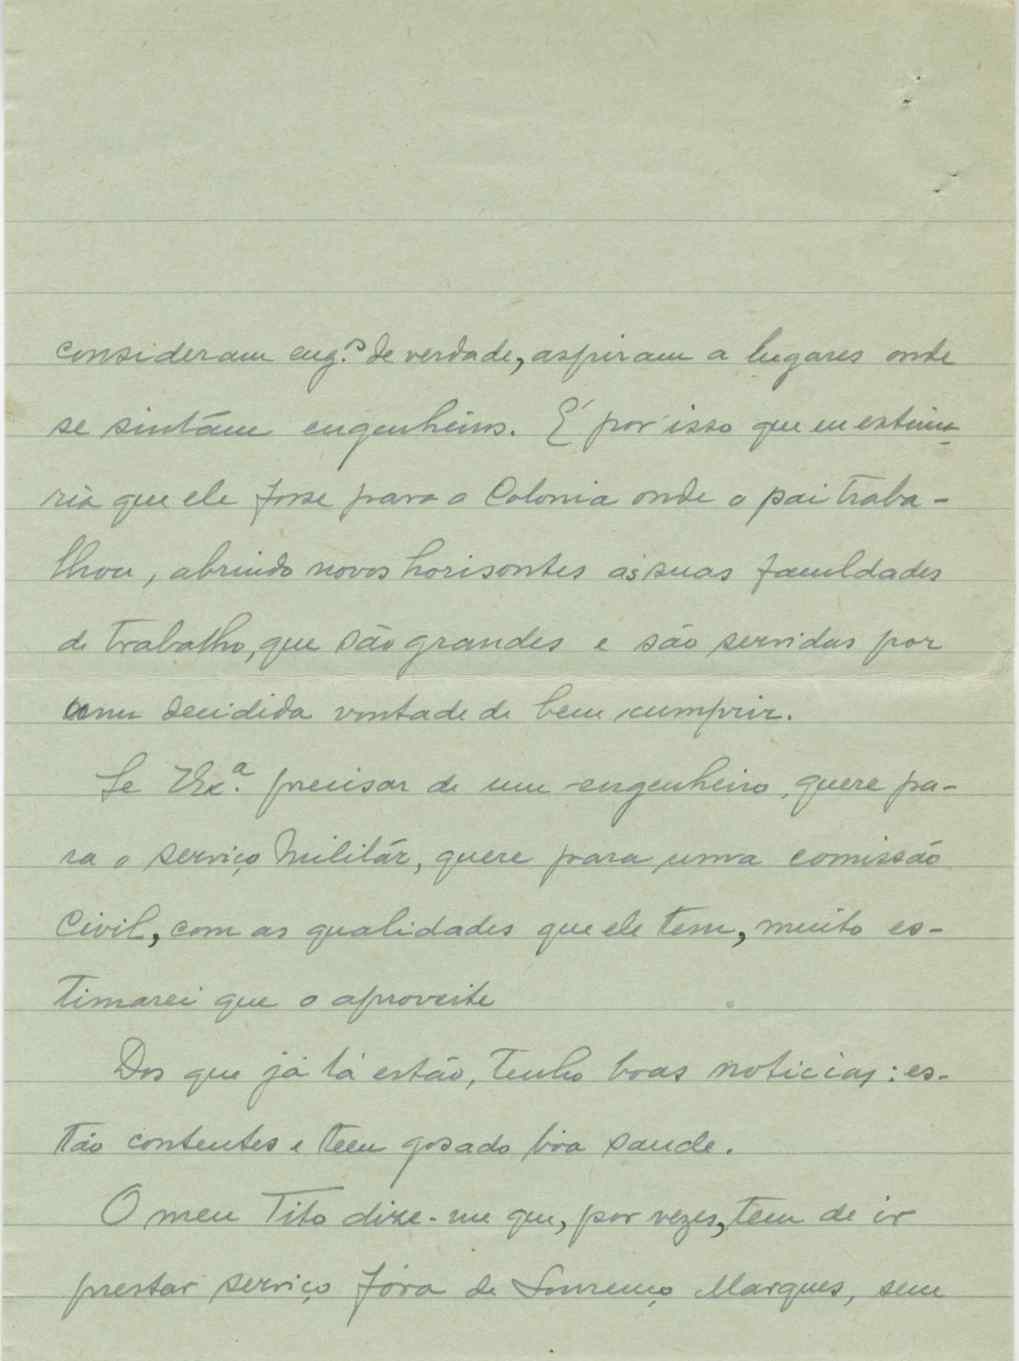 consideram eng.os de verdade, aspiram a lugares onde
se sintám engenheiros. É por isso que eu estima-
ria que ele fosse para a Colonia onde o pai traba-
lhou, abrindo novos horisontes ás suas faculdades
de trabalho, que são grandes e são servidas por
uma decidida vontade de bem cumprir.
Se VEx.a precisar de um engenheiro, quere pa-
ra o serviço Militár, quere para uma comissão
Civil, com as qualidades que ele tem, muito es-
timarei que o aproveite
Dos que já lá estão, tenho boas noticias: es-
tão contentes e teem gosado bôa saude.
O meu Tito dize-me que, por vezes, tem de ir
prestar serviço fóra de Lourenço Marques, sem